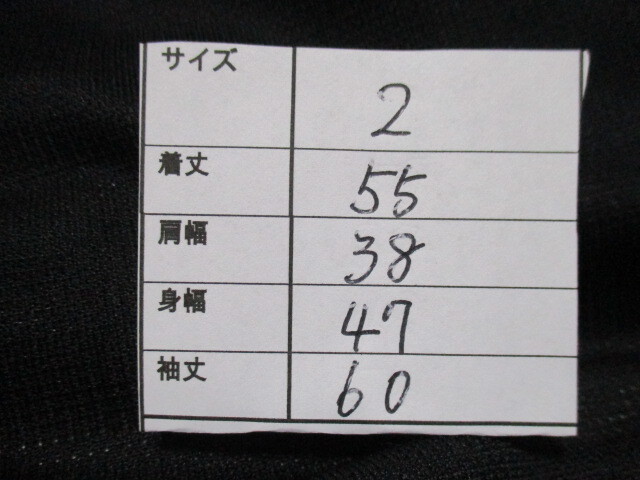 サイズ 2
着丈 55
肩幅 38
身幅 47
袖丈 60